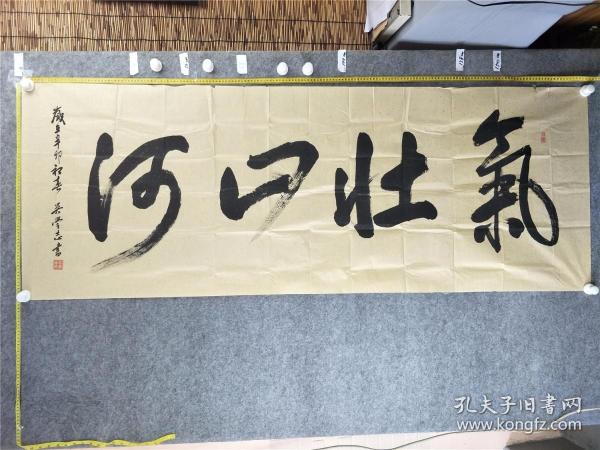 氣壯山河
歲在辛卯初春 吴学志書
孔夫子旧書网
www.kongfz.com